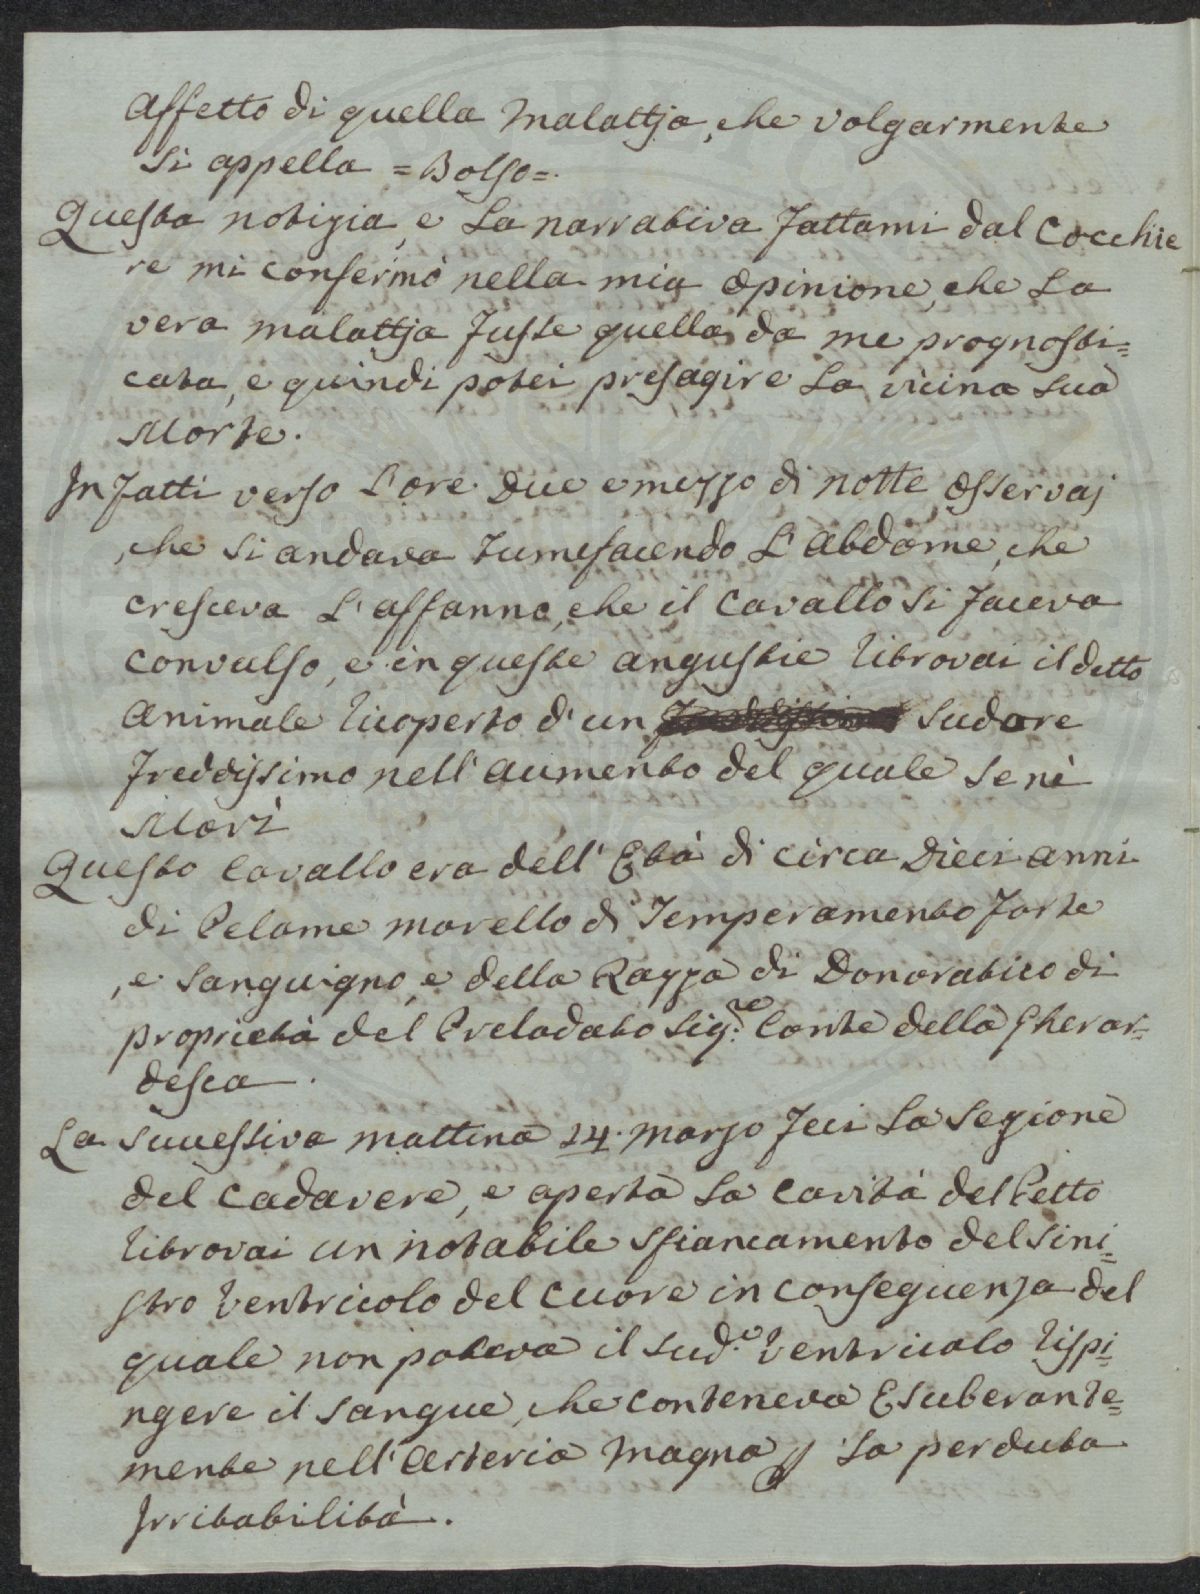 affetto di quella Malattja, che volgarmente
si appella = Bolso =.
Questa notizia, e La narrativa fattami dal Cocchie
re mi confermò nella mia opinione, che La
vera malattja fusse quella da me prognosti=
cata, e quindi potei presagire La vicina sua
Morte.
In fatti verso L'ore Due e mezzo di notte osservaj
, che si andava tumefacendo L'abdome, che
cresceva L'affanno, che il Cavallo si faceva
convulso, e in queste angustie ritrovai il detto
animale ricoperto d'un sudore
freddissimo nell'aumento del quale se nè
Morì
Questo Cavallo era dell'Età di circa Dieci anni
di Pelame morello di Temperamento forte
, e sanguigno, e della Razza di Donoratico di
proprietà del Prelodato Sig.re Conte della Gherar=
desca.
La successiva mattina 24. Marzo feci La Sezione
del Cadavere, e aperta La Cavità del Petto
ritrovai un notabile sfiancamento del sini=
stro Ventricolo del Cuore in conseguenza del
quale non poteva il sud.o Ventricolo rispi=
ngere il sangue, che conteneva Esuberante=
mente nell'Arteria Magna La perduta
Irritabilità.